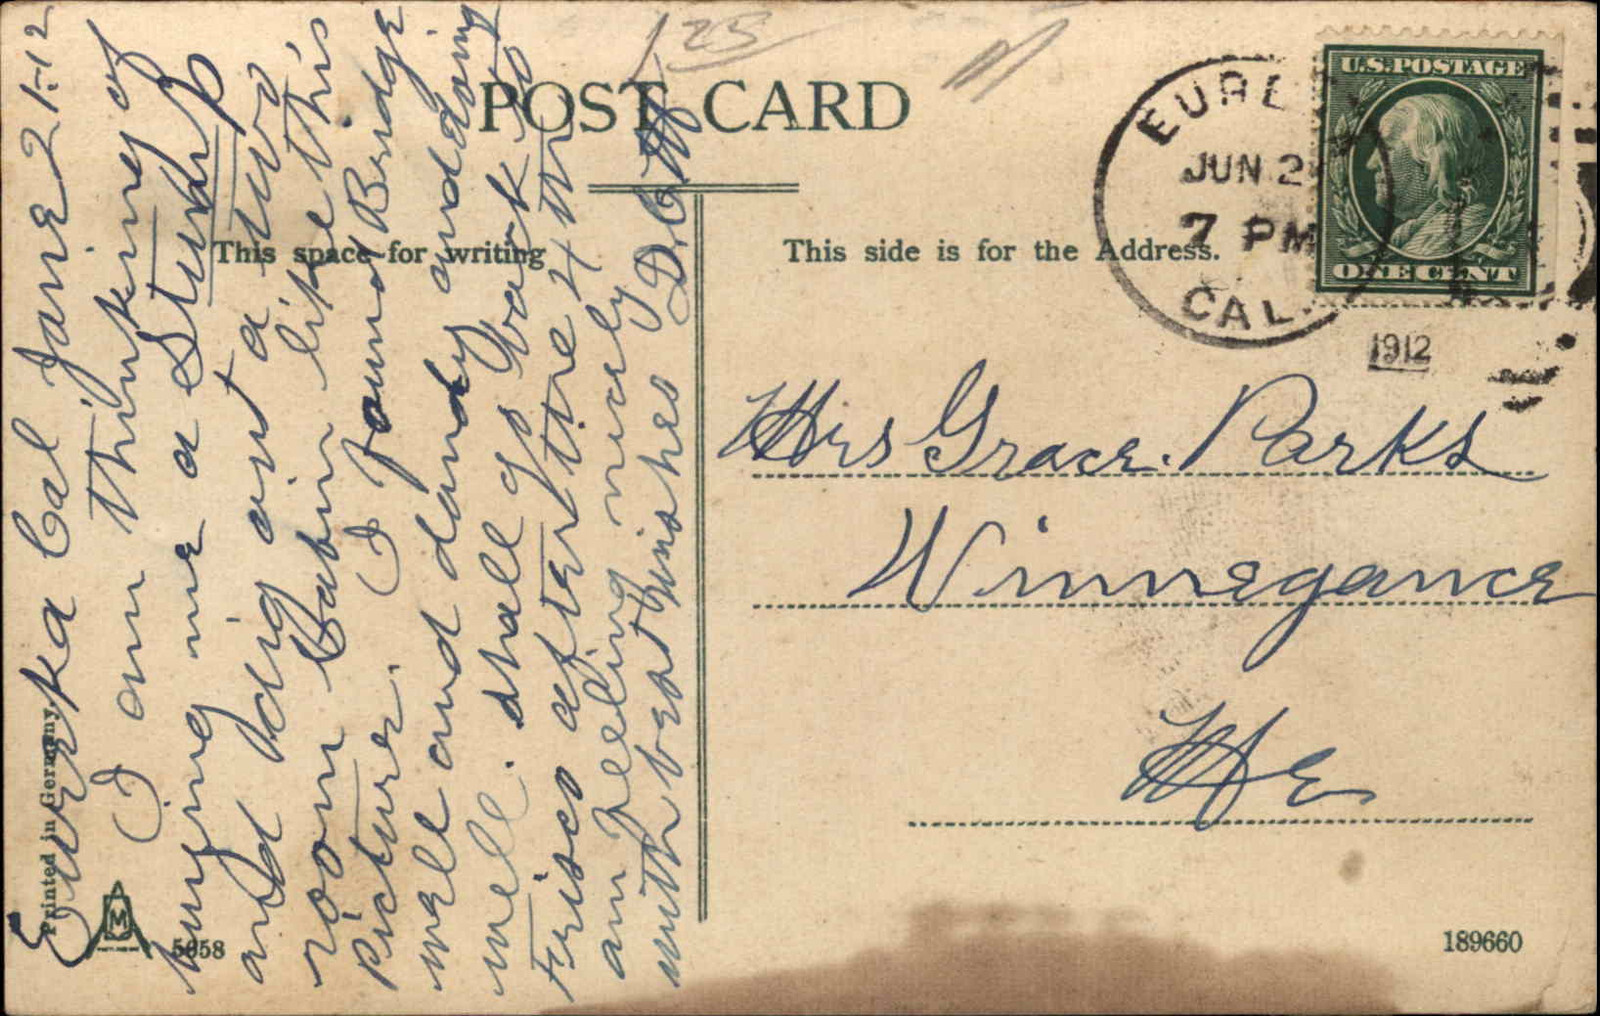 POST CARD
This space for writing
This side is for the Address.
125
EUREKA
JUN 2
7 PM
CAL.
U.S. POSTAGE
ONE CENT
1912
Eureka Cal June 21-12
I am thinking of
buying me a Stump
and dig out a two
room Cabin like this
Picture. I found Bridge
well and dandy and doing
well. shall go back to
Frisco after the 4th
am feeling nicely
with best wishes
Mrs Grace. Parks
Winnegance
Me
Printed in Germany.
M
5658
189660